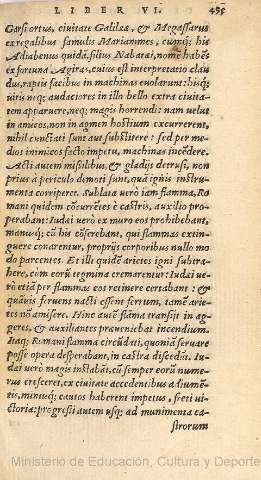 LIBER VI. 495
Garsi ortus, ciuitate Galileæ, & Megassarus
ex regalibus famulis Mariammes, cumq; his
Adiabenus quidã, filius Nabatæi, nomẽ habẽs
ex fortuna Agiras, cuius est interpretatio clau
dus, raptis facibus in machinas euolarunt: hisq;
uiris neq; audaciores in illo bello extra ciuita
tem apparuere, neq; magis horrendi: nam uelut
in amicos, non in agmen hostium excurrerent,
nihil cunctati sunt aut substitere: sed per me
dios inimicos facto impetu, machinas incendere.
Acti autem missilibus & gladijs detrusi, non
prius à periculo demoti sunt, quã ignis instru
menta corriperet. Sublata uerò iam flamma, Ro
mani quidem cõcurrẽtes è castris, auxilio pro-
perabant: Iudæi uerò ex muro eos prohibebant,
manusq; cũ his cõserebant, qui flammas extin-
guere conarentur, proprijs corporibus nullo mo
do parcentes. Et illi quidẽ arietes igni subtra-
here, cum eorũ tegmina cremarentur: Iudæi ue-
rò etiã per flammas eos retinere certabant: &
quãuis feruens nacti essent ferrum, tamẽ arie-
tes nõ amisere. Hinc autẽ flãma transijt in ag-
geres, & auxiliantes præueniebat incendium.
Itaq; Romani flamma circũdati, quoniã seruare
posse opera desperabant, in castra discedũt. Iu-
dæi uerò magis instabãt, cũ semper eorũ nume-
rus cresceret, ex ciuitate accedentibus adiumẽ-
tis, minusq; cautos haberent impetus, freti ui-
ctoria: progressi autem usq; ad munimenta ca-
strorum
Ministerio de Educación, Cultura y Deporte